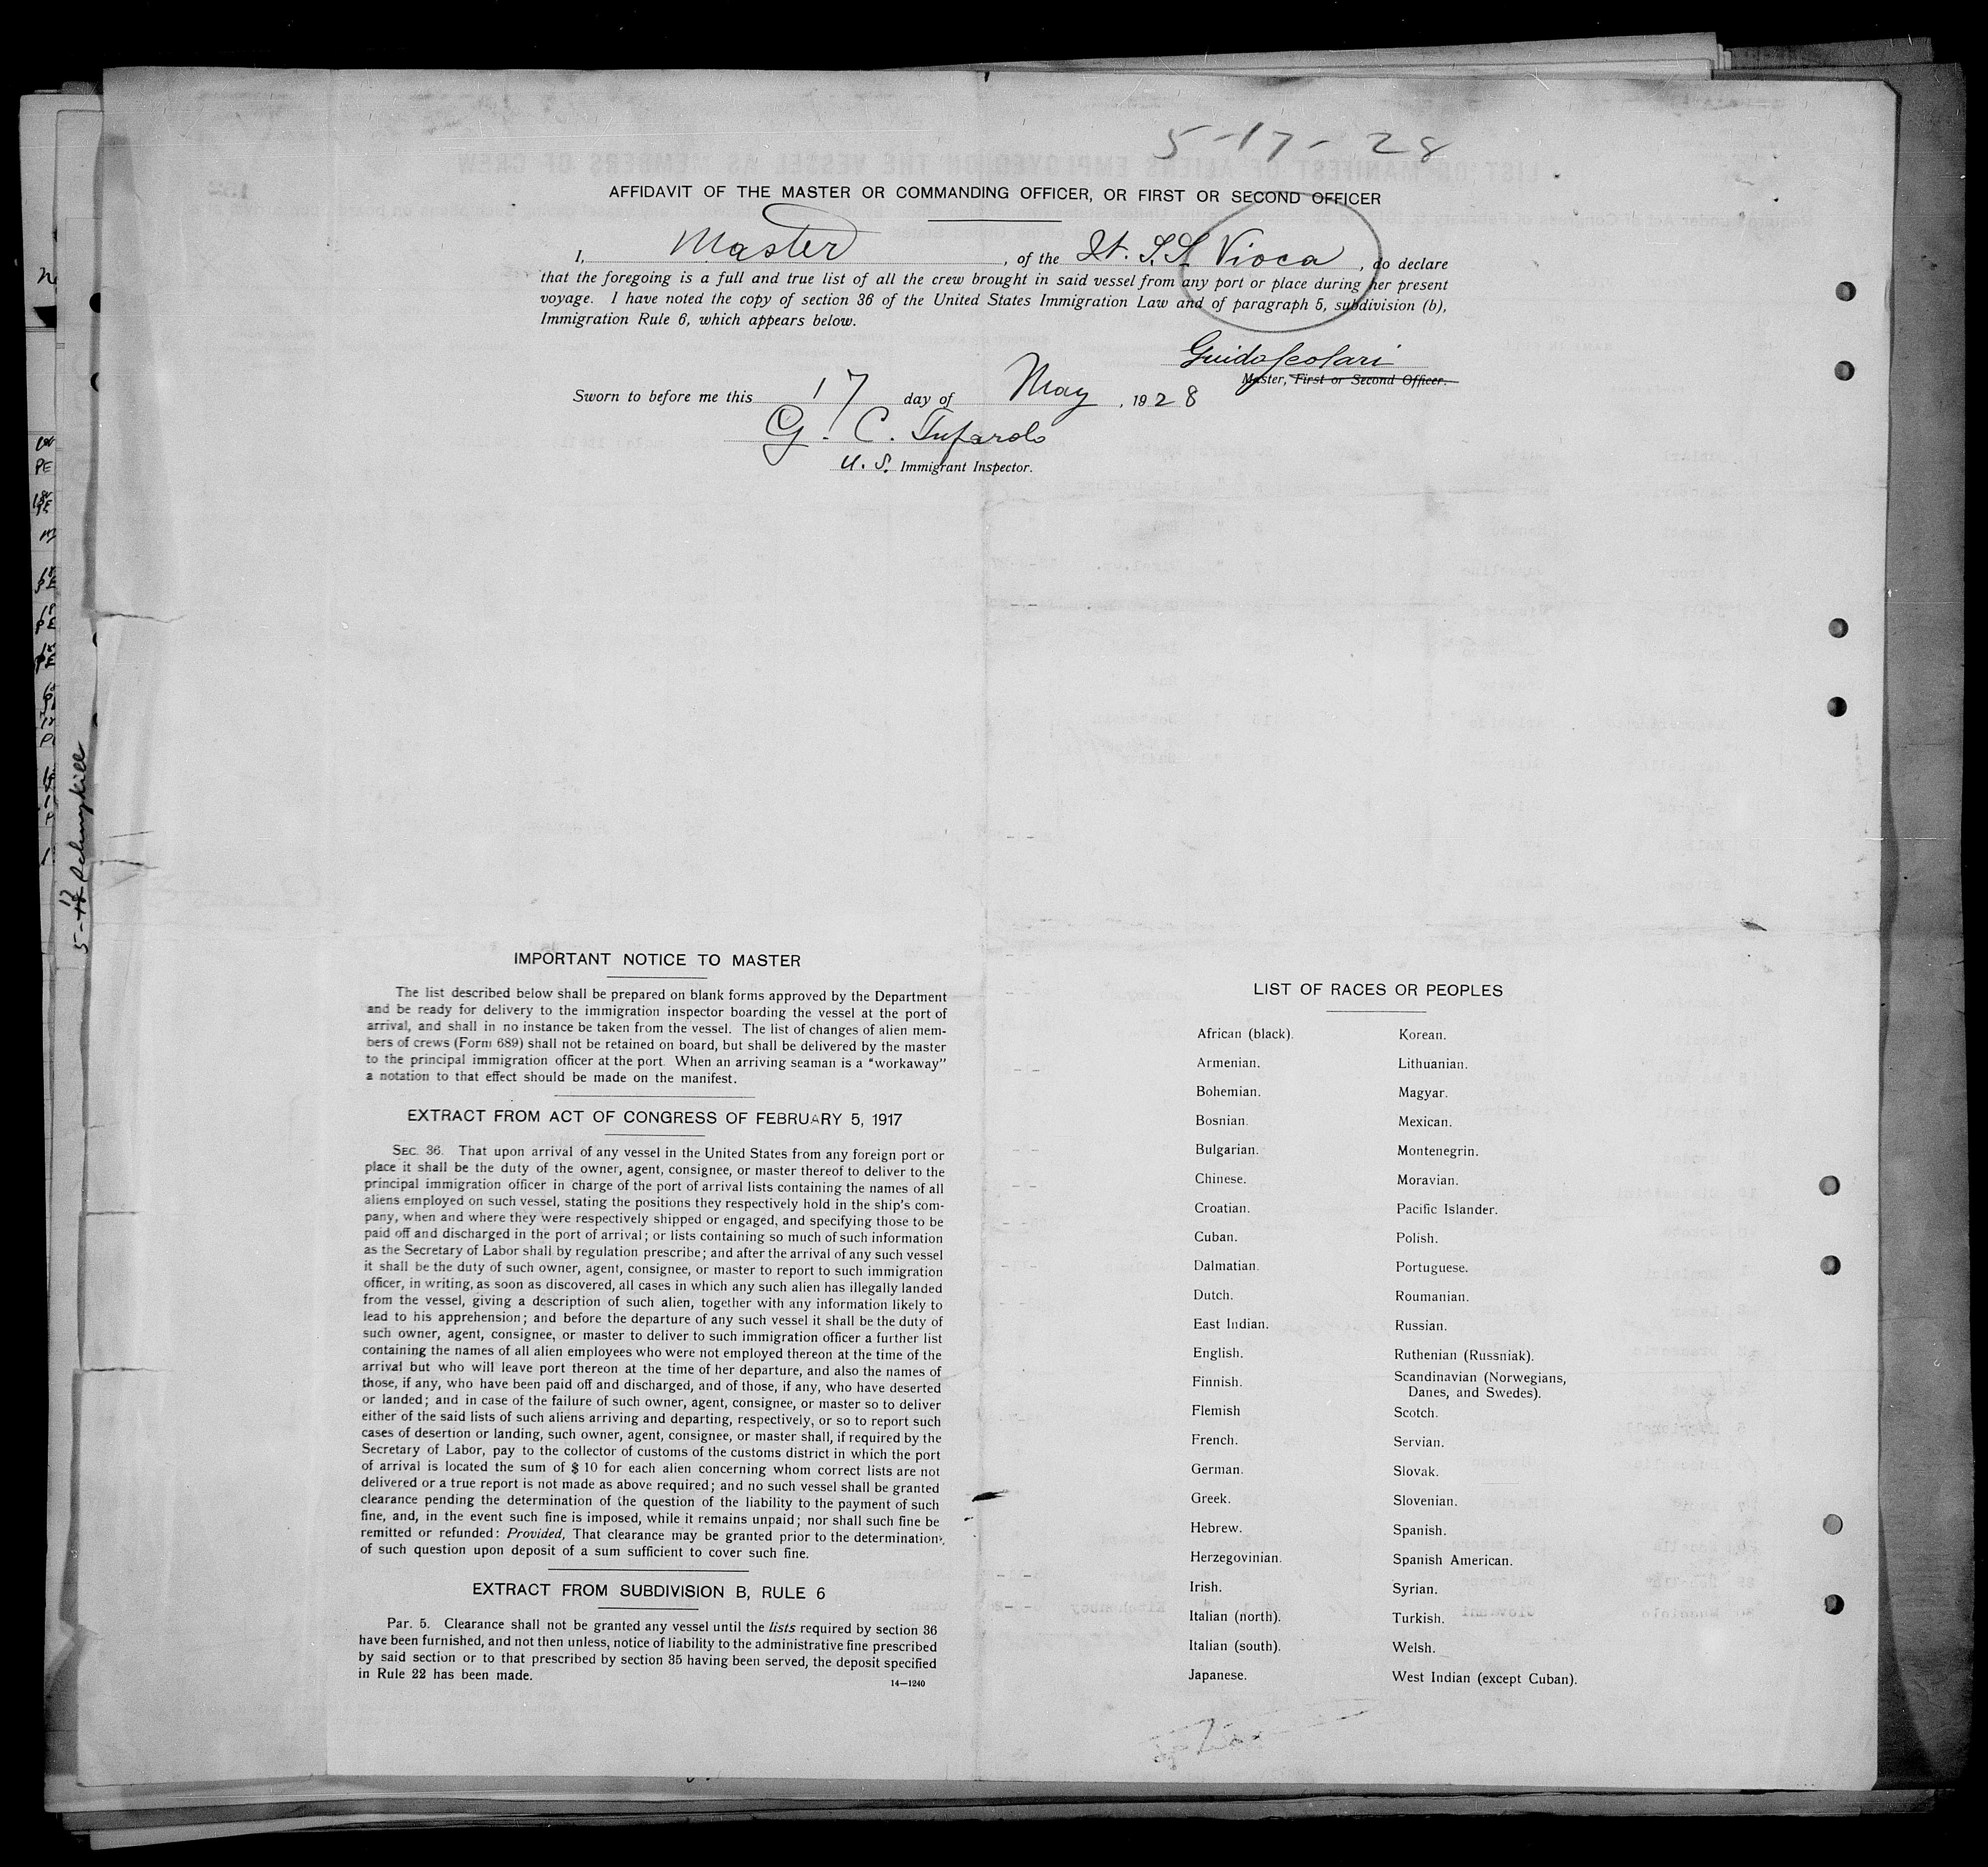 5-17-28
AFFIDAVIT OF THE MASTER OR COMMANDING OFFICER, OR FIRST OR SECOND OFFICER
I, Master, of the It. S.S. Vioca, do declare
that the foregoing is a full and true list of all the crew brought in said vessel from any port or place during her present
voyage. I have noted the copy of section 36 of the United States Immigration Law and of paragraph 5, subdivision (b),
Immigration Rule 6, which appears below.
Guido Scolari
Master, First or Second Officer.
Sworn to before me this 17 day of May, 1928
G. C. Tufarolo
U. S. Immigrant Inspector.
5-17 Schuykill
IMPORTANT NOTICE TO MASTER
The list described below shall be prepared on blank forms approved by the Department
and be ready for delivery to the immigration inspector boarding the vessel at the port of
arrival, and shall in no instance be taken from the vessel. The list of changes of alien mem-
bers of crews (Form 689) shall not be retained on board, but shall be delivered by the master
to the principal immigration officer at the port. When an arriving seaman is a "workaway"
a notation to that effect should be made on the manifest.
EXTRACT FROM ACT OF CONGRESS OF FEBRUARY 5, 1917
SEC. 36. That upon arrival of any vessel in the United States from any foreign port or
place it shall be the duty of the owner, agent, consignee, or master thereof to deliver to the
principal immigration officer in charge of the port of arrival lists containing the names of all
aliens employed on such vessel, stating the positions they respectively hold in the ship's com-
pany, when and where they were respectively shipped or engaged, and specifying those to be
paid off and discharged in the port of arrival; or lists containing so much of such information
as the Secretary of Labor shall by regulation prescribe; and after the arrival of any such vessel
it shall be the duty of such owner, agent, consignee, or master to report to such immigration
officer, in writing, as soon as discovered, all cases in which any such alien has illegally landed
from the vessel, giving a description of such alien, together with any information likely to
lead to his apprehension; and before the departure of any such vessel it shall be the duty of
such owner, agent, consignee, or master to deliver to such immigration officer a further list
containing the names of all alien employees who were not employed thereon at the time of the
arrival but who will leave port thereon at the time of her departure, and also the names of
those, if any, who have been paid off and discharged, and of those, if any, who have deserted
or landed; and in case of the failure of such owner, agent, consignee, or master so to deliver
either of the said lists of such aliens arriving and departing, respectively, or so to report such
cases of desertion or landing, such owner, agent, consignee, or master shall, if required by the
Secretary of Labor, pay to the collector of customs of the customs district in which the port
of arrival is located the sum of $10 for each alien concerning whom correct lists are not
delivered or a true report is not made as above required; and no such vessel shall be granted
clearance pending the determination of the question of the liability to the payment of such
fine, and, in the event such fine is imposed, while it remains unpaid; nor shall such fine be
remitted or refunded: Provided, That clearance may be granted prior to the determination
of such question upon deposit of a sum sufficient to cover such fine.
EXTRACT FROM SUBDIVISION B, RULE 6
Par. 5. Clearance shall not be granted any vessel until the lists required by section 36
have been furnished, and not then unless, notice of liability to the administrative fine prescribed
by said section or to that prescribed by section 35 having been served, the deposit specified
in Rule 22 has been made.
14—1240
LIST OF RACES OR PEOPLES
African (black).
Armenian.
Bohemian.
Bosnian.
Bulgarian.
Chinese.
Croatian.
Cuban.
Dalmatian.
Dutch.
East Indian.
English.
Finnish.
Flemish
French.
German.
Greek.
Hebrew.
Herzegovinian.
Irish.
Italian (north).
Italian (south).
Japanese.
Korean.
Lithuanian.
Magyar.
Mexican.
Montenegrin.
Moravian.
Pacific Islander.
Polish.
Portuguese.
Roumanian.
Russian.
Ruthenian (Russniak).
Scandinavian (Norwegians,
Danes, and Swedes).
Scotch.
Servian.
Slovak.
Slovenian.
Spanish.
Spanish American.
Syrian.
Turkish.
Welsh.
West Indian (except Cuban).